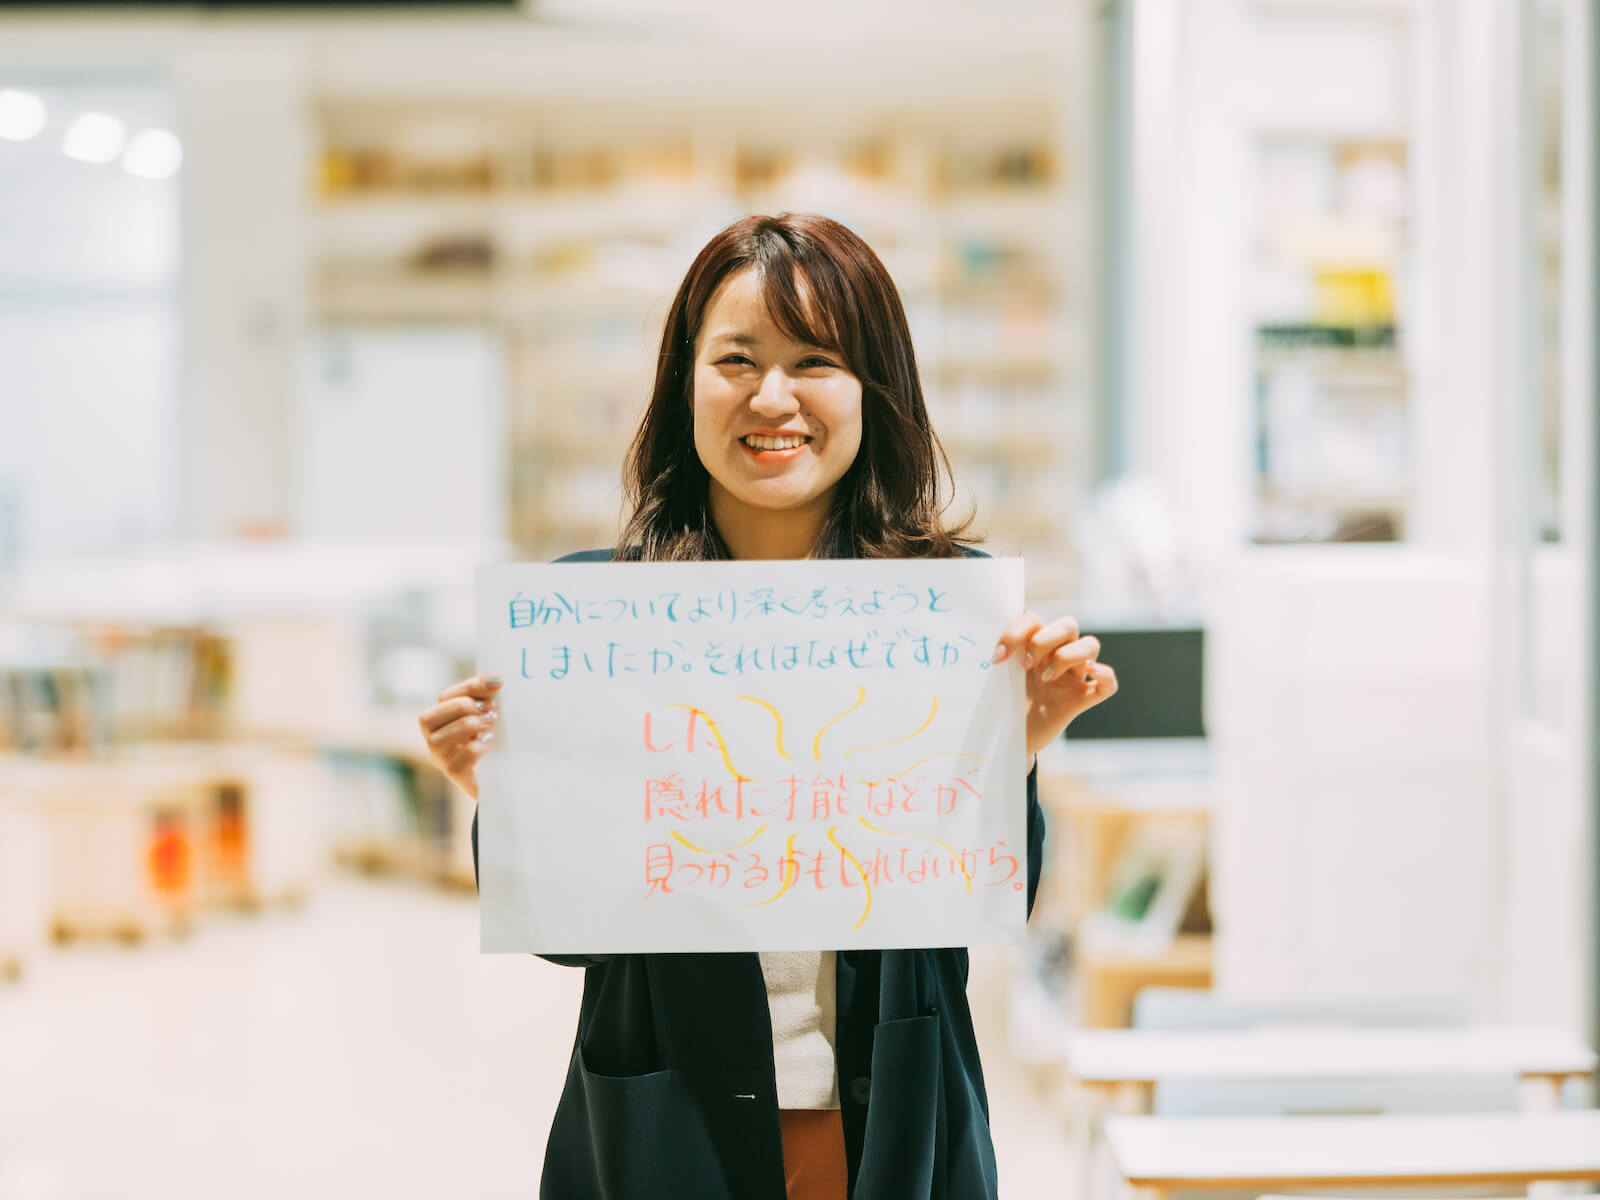 自分についてより深く考えようと
しましたか。それはなぜですか。
した
隠れた才能などが
見つかるかもしれないから。